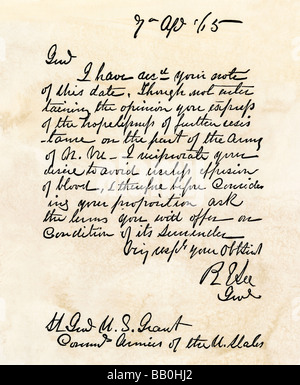 7th Apl '65
Genl
I have recd your note
of this date. Though not enter
taining the opinion you express
of the hopelessness of further resis
tance on the part of the Army
of N. Va - I reciprocate your
desire to avoid useless effusion
of blood, & therefore before consider
ing your proposition ask
the terms you will offer on
condition of its surrender
Very respy your obt Servt
R E Lee
Genl
Lt Genl U. S. Grant
Commd Armies of the U. States
alamy
BB0HJ2